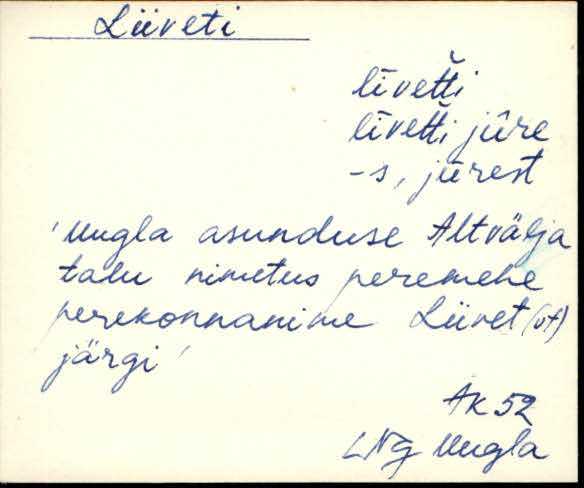 Liiveti
līvetti
līvetti jūre
-s, jūrest
'Uugla asunduse Altvälja
talu nimetus peremehe
perekonnanime Liivet (vt)
järgi'
AK 52
LNg Uugla